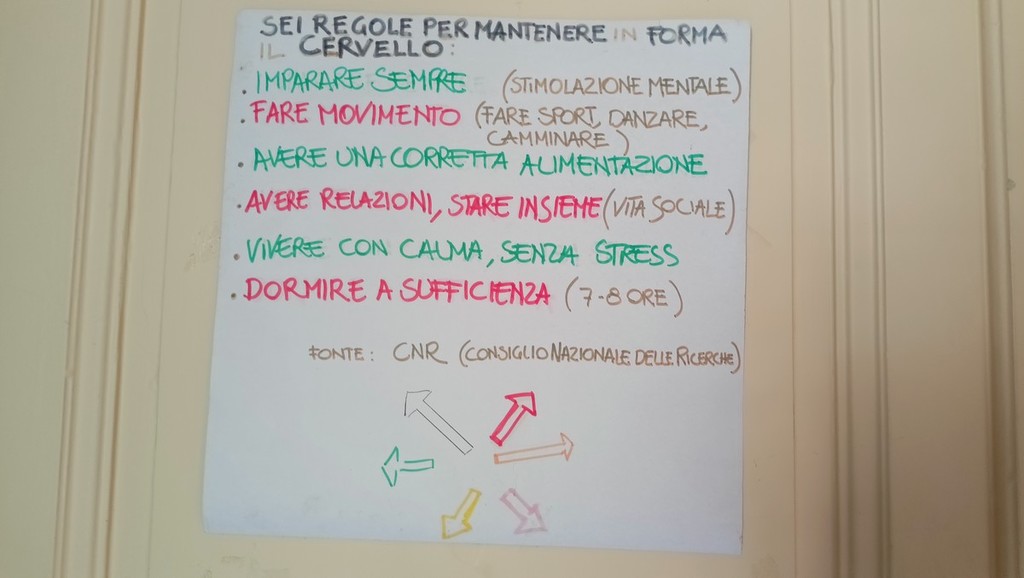 SEI REGOLE PER MANTENERE IN FORMA
IL CERVELLO:
. IMPARARE SEMPRE (STIMOLAZIONE MENTALE)
. FARE MOVIMENTO (FARE SPORT, DANZARE,
CAMMINARE)
. AVERE UNA CORRETTA ALIMENTAZIONE
. AVERE RELAZIONI, STARE INSIEME (VITA SOCIALE)
. VIVERE CON CALMA, SENZA STRESS
. DORMIRE A SUFFICIENZA (7-8 ORE)
FONTE: CNR (CONSIGLIO NAZIONALE DELLE RICERCHE)